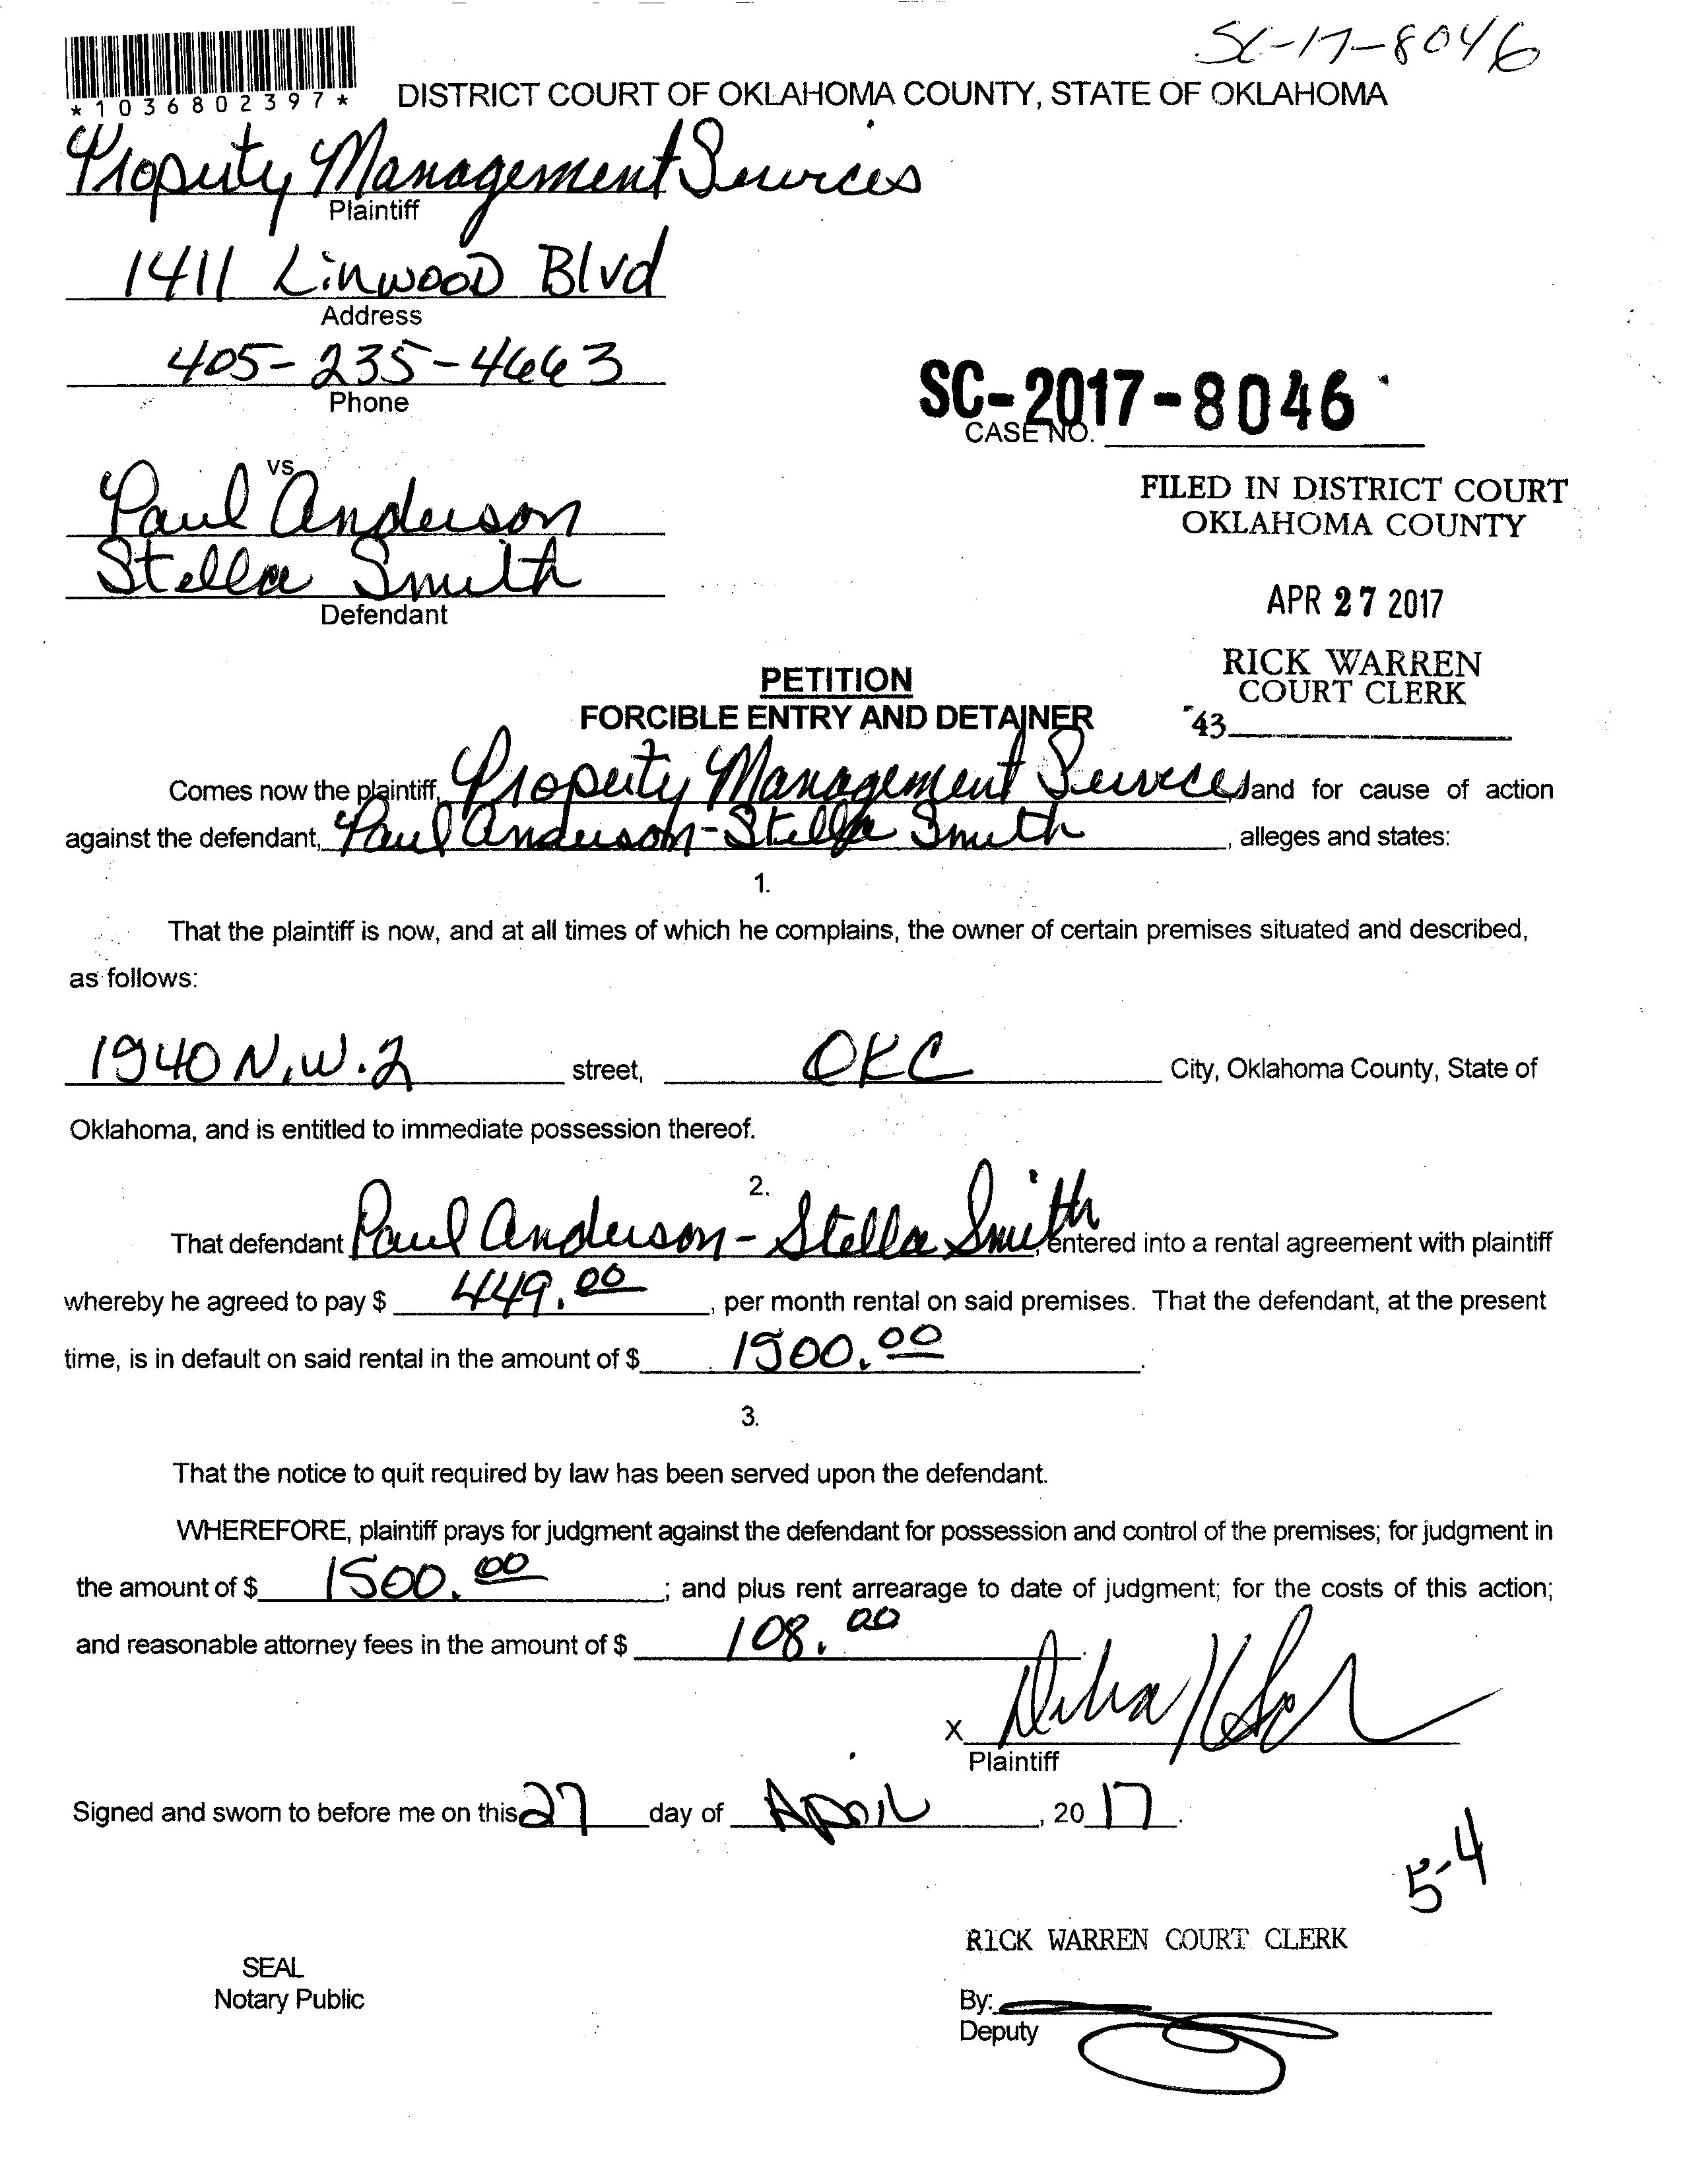 SC-17-8046
*1036802397*
DISTRICT COURT OF OKLAHOMA COUNTY, STATE OF OKLAHOMA
Property Management Services
Plaintiff
1411 Linwood Blvd
Address
405-235-4663
Phone
SC-2017-8046
CASE NO.
vs
Paul Anderson
Stella Smith
Defendant
FILED IN DISTRICT COURT
OKLAHOMA COUNTY
APR 27 2017
RICK WARREN
COURT CLERK
43
PETITION
FORCIBLE ENTRY AND DETAINER
Comes now the plaintiff, Property Management Services, and for cause of action
against the defendant, Paul Anderson-Stella Smith, alleges and states:
1.
That the plaintiff is now, and at all times of which he complains, the owner of certain premises situated and described,
as follows:
1940 N.W. 2 street, OKC City, Oklahoma County, State of
Oklahoma, and is entitled to immediate possession thereof.
2.
That defendant Paul Anderson-Stella Smith, entered into a rental agreement with plaintiff
whereby he agreed to pay $ 449.00, per month rental on said premises. That the defendant, at the present
time, is in default on said rental in the amount of $ 1500.00.
3.
That the notice to quit required by law has been served upon the defendant.
WHEREFORE, plaintiff prays for judgment against the defendant for possession and control of the premises; for judgment in
the amount of $ 1500.00; and plus rent arrearage to date of judgment; for the costs of this action;
and reasonable attorney fees in the amount of $ 108.00.
X
Plaintiff
Signed and sworn to before me on this 27 day of April, 2017.
5-4
RICK WARREN COURT CLERK
SEAL
Notary Public
By:
Deputy